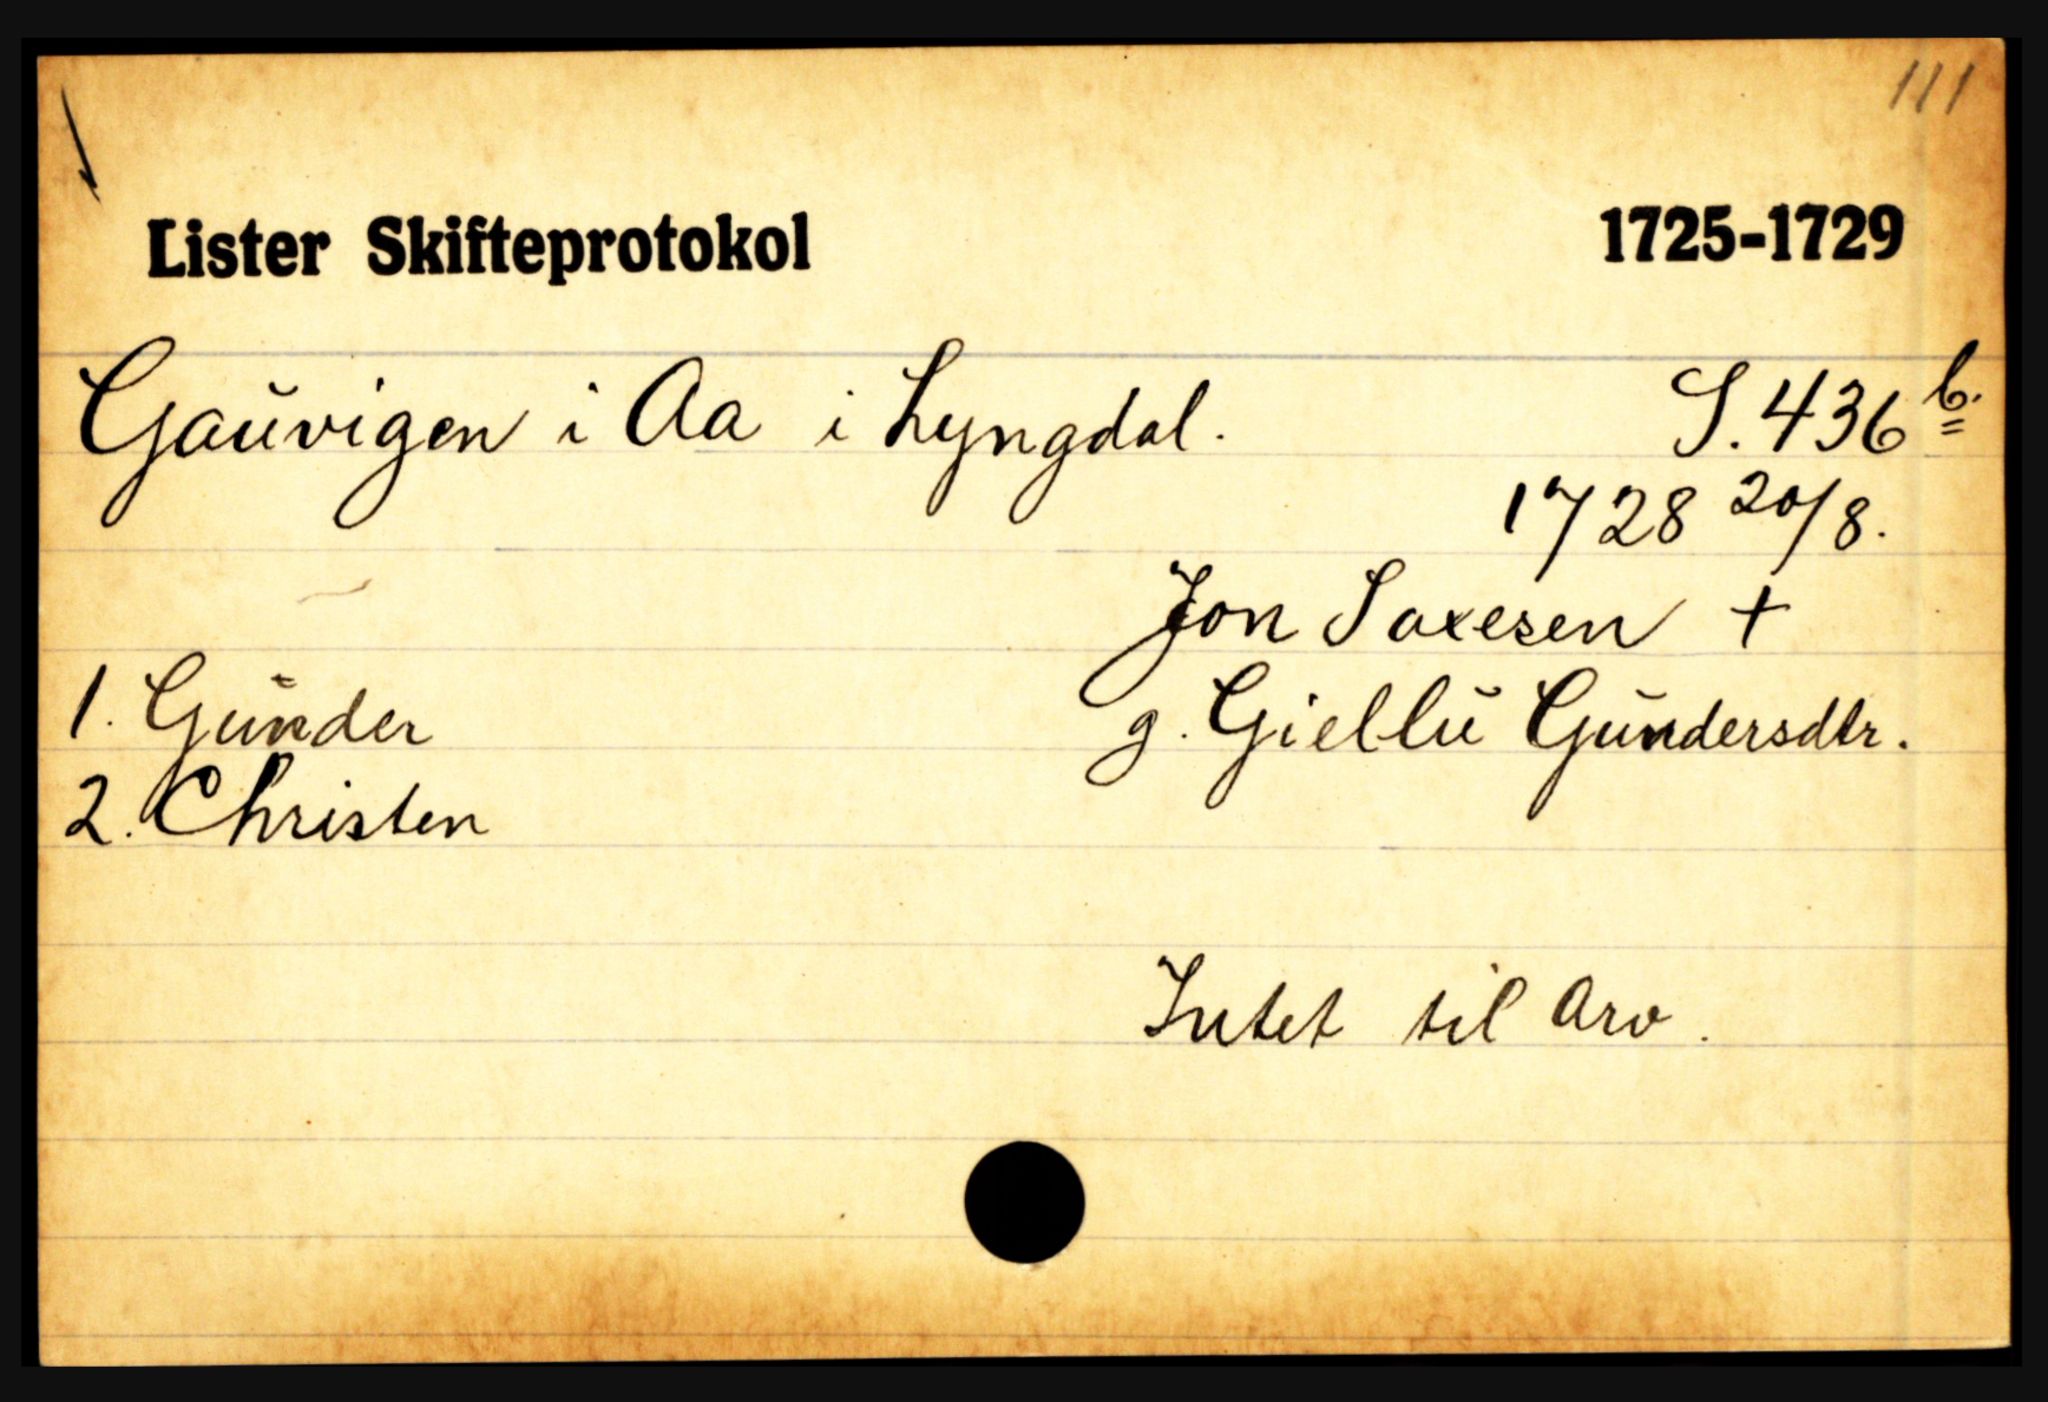 111
Lister Skifteprotokol 1725-1729
Gaŭvigen i Aa i Lyngdal. S. 436 b.
1728 20/8.
Jon Saxesen +
1. Gŭnder g. Giellŭ Gŭndersdtr.
2. Christen
Intet til Arv.